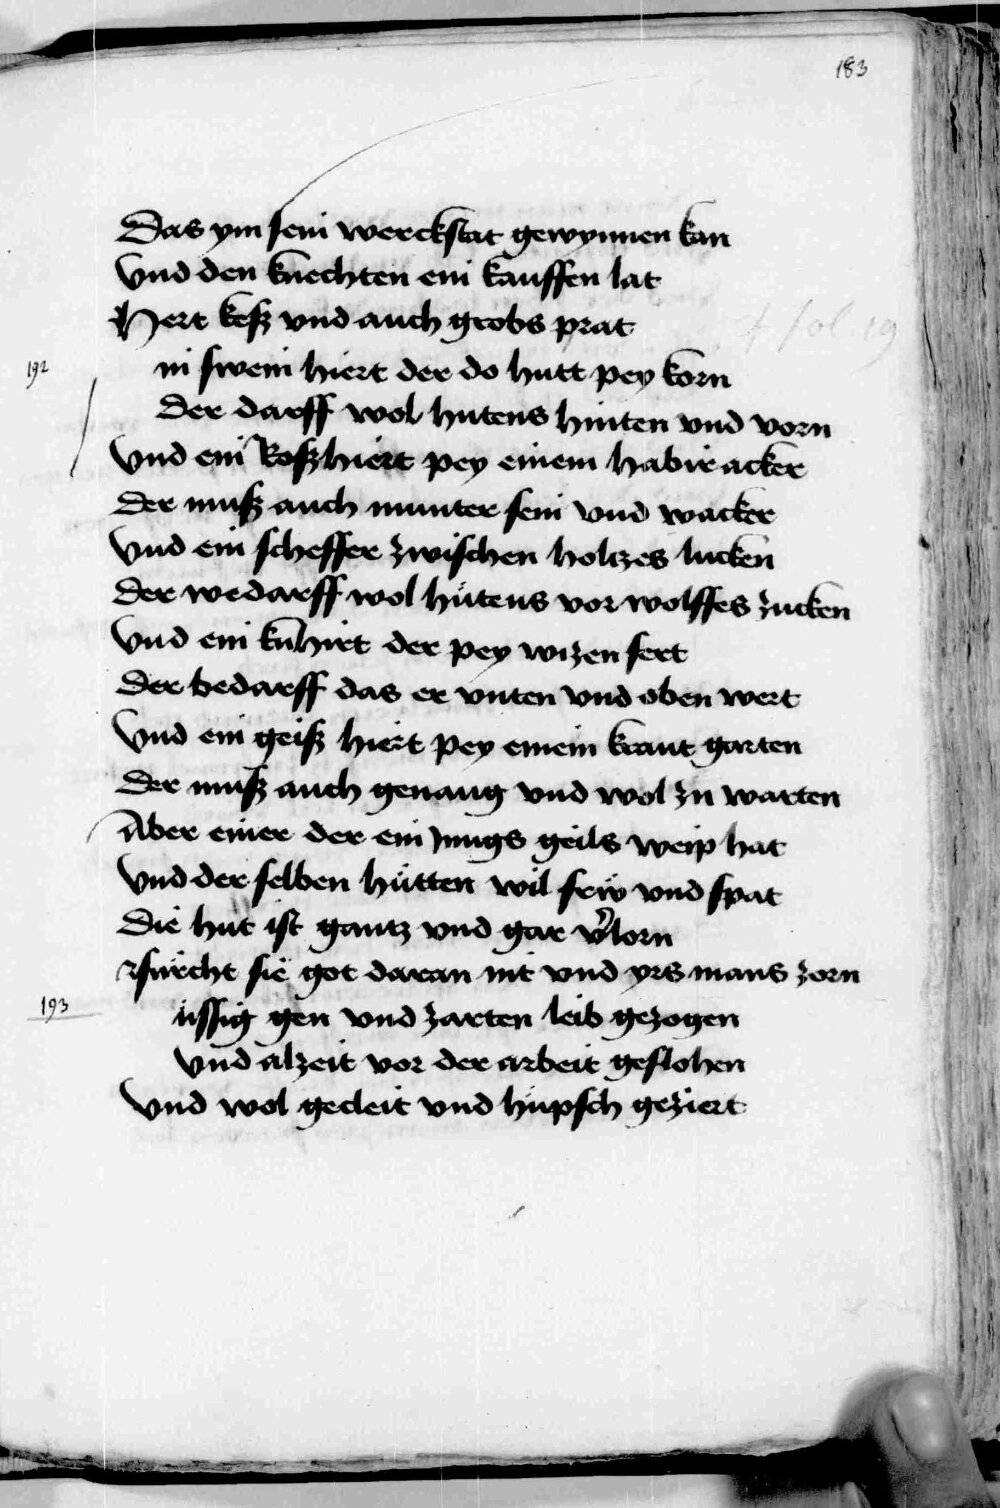 183
Das ym sein werckstat gewynnen kan
Vnd den knechten ein kauffen lat
Hert keß vnd auch grobs prat
192
in swein hiert der do hutt pey korn
Der darff wol hutens hinten vnd vorn
Vnd ein Roßhiert pey einem habir acker
Der muß auch munter sein vnd wacker
Vnd ein scheffer zwischen holtzes lucken
Der wedarff wol hütens vor wolffes zucken
Vnd ein kuhirt der pey wizen fert
Der bedarff das er vnten vnd oben wert
Vnd ein geiß hiert pey einem kraut garten
Der muß auch genaug vnd wol zu warten
Aber einer der ein jungs geils weip hat
Vnd der selben hütten wil frw vnd spat
Die hut ist gantz vnd gar v'lorn
fürcht sie got daran nit vnd yrs mans zorn
193
üssig gen vnd zarten leib gezogen
Vnd alzeit vor der arbeit geflohen
Vnd wol gecleit vnd hüpsch geziert